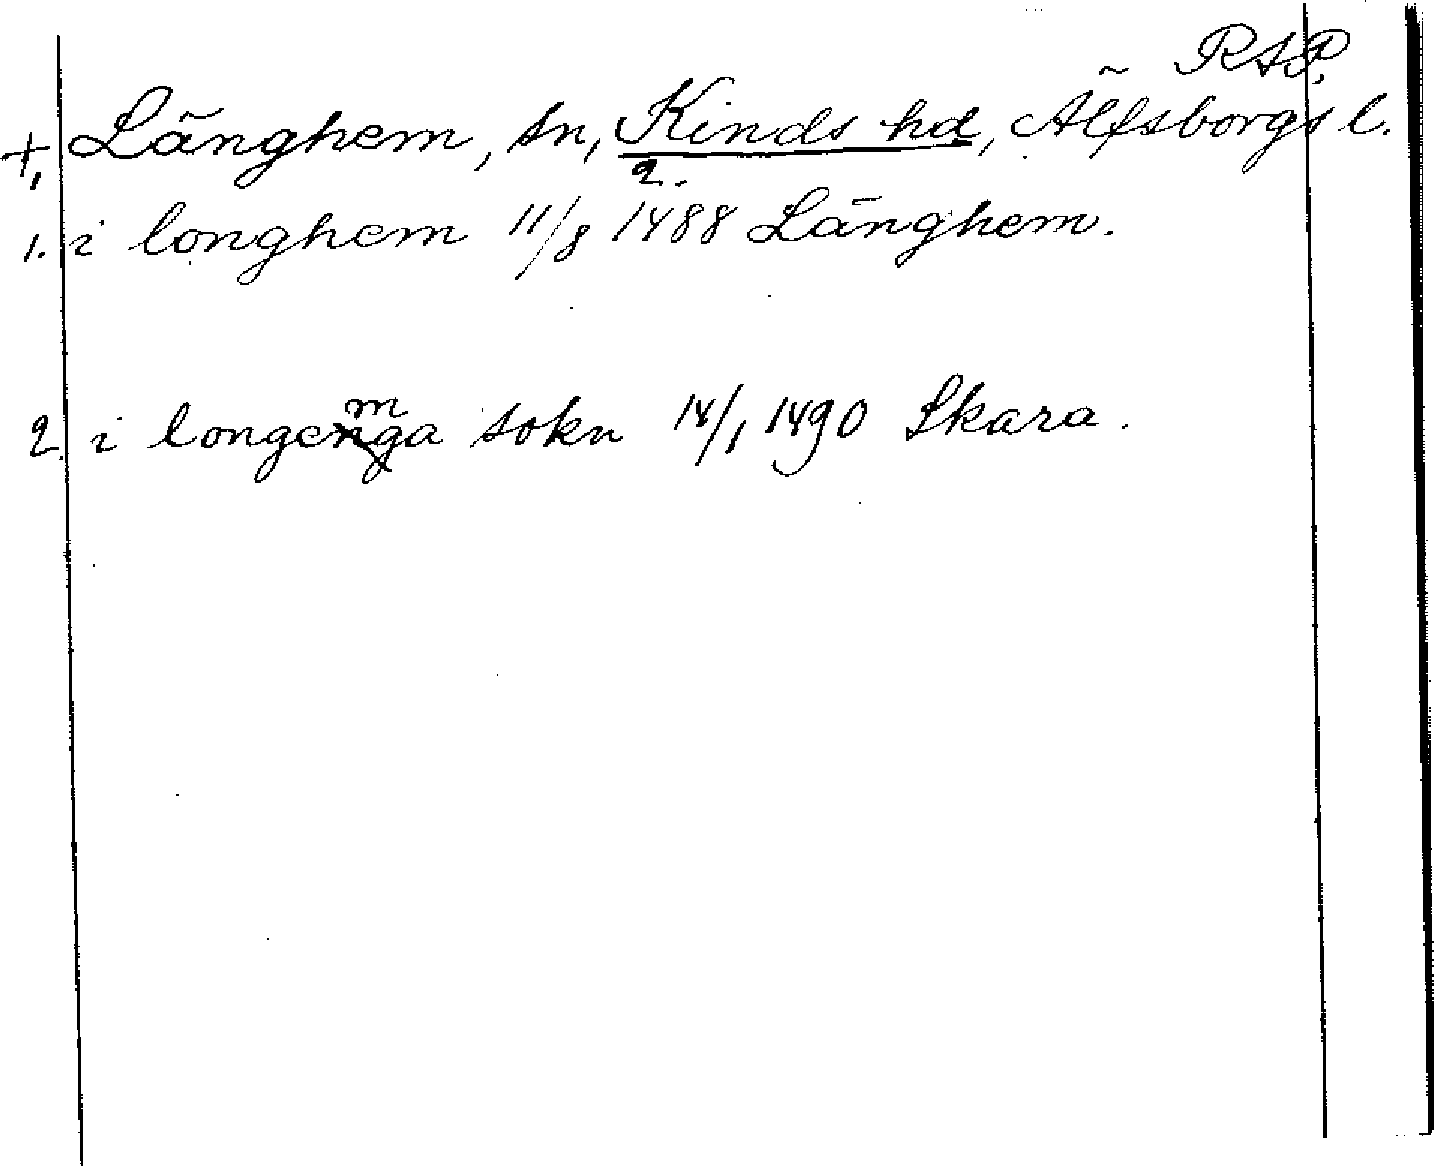 RAP.
+, Länghem, sn, Kinds hd, Älfsborgs l.
2.
1. i longhem 11/8 1488 Länghem.
m
2 i longenga sokn 14/1 1490 Skara.